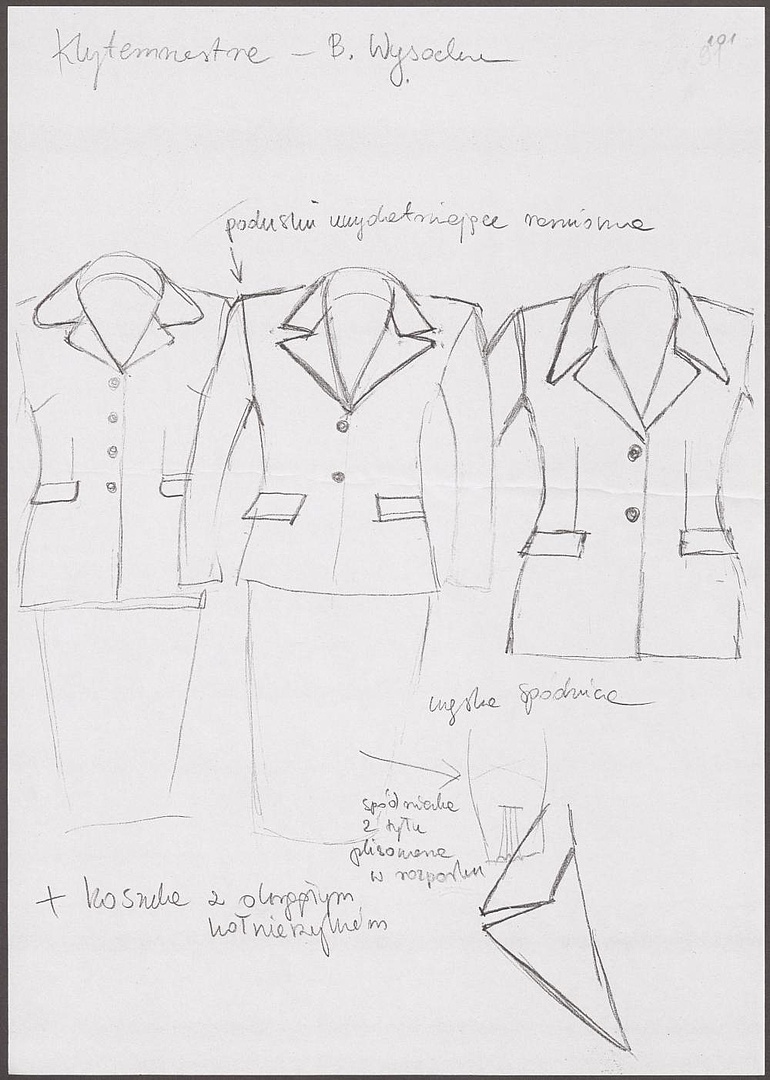 Klytemnestra – B. Wysocka
191
poduszki uwydatniające ramiona
wąska spódnica
spódniczka
z tyłu
plisowana
w rozporku
+ koszula z okrągłym
kołnierzykiem